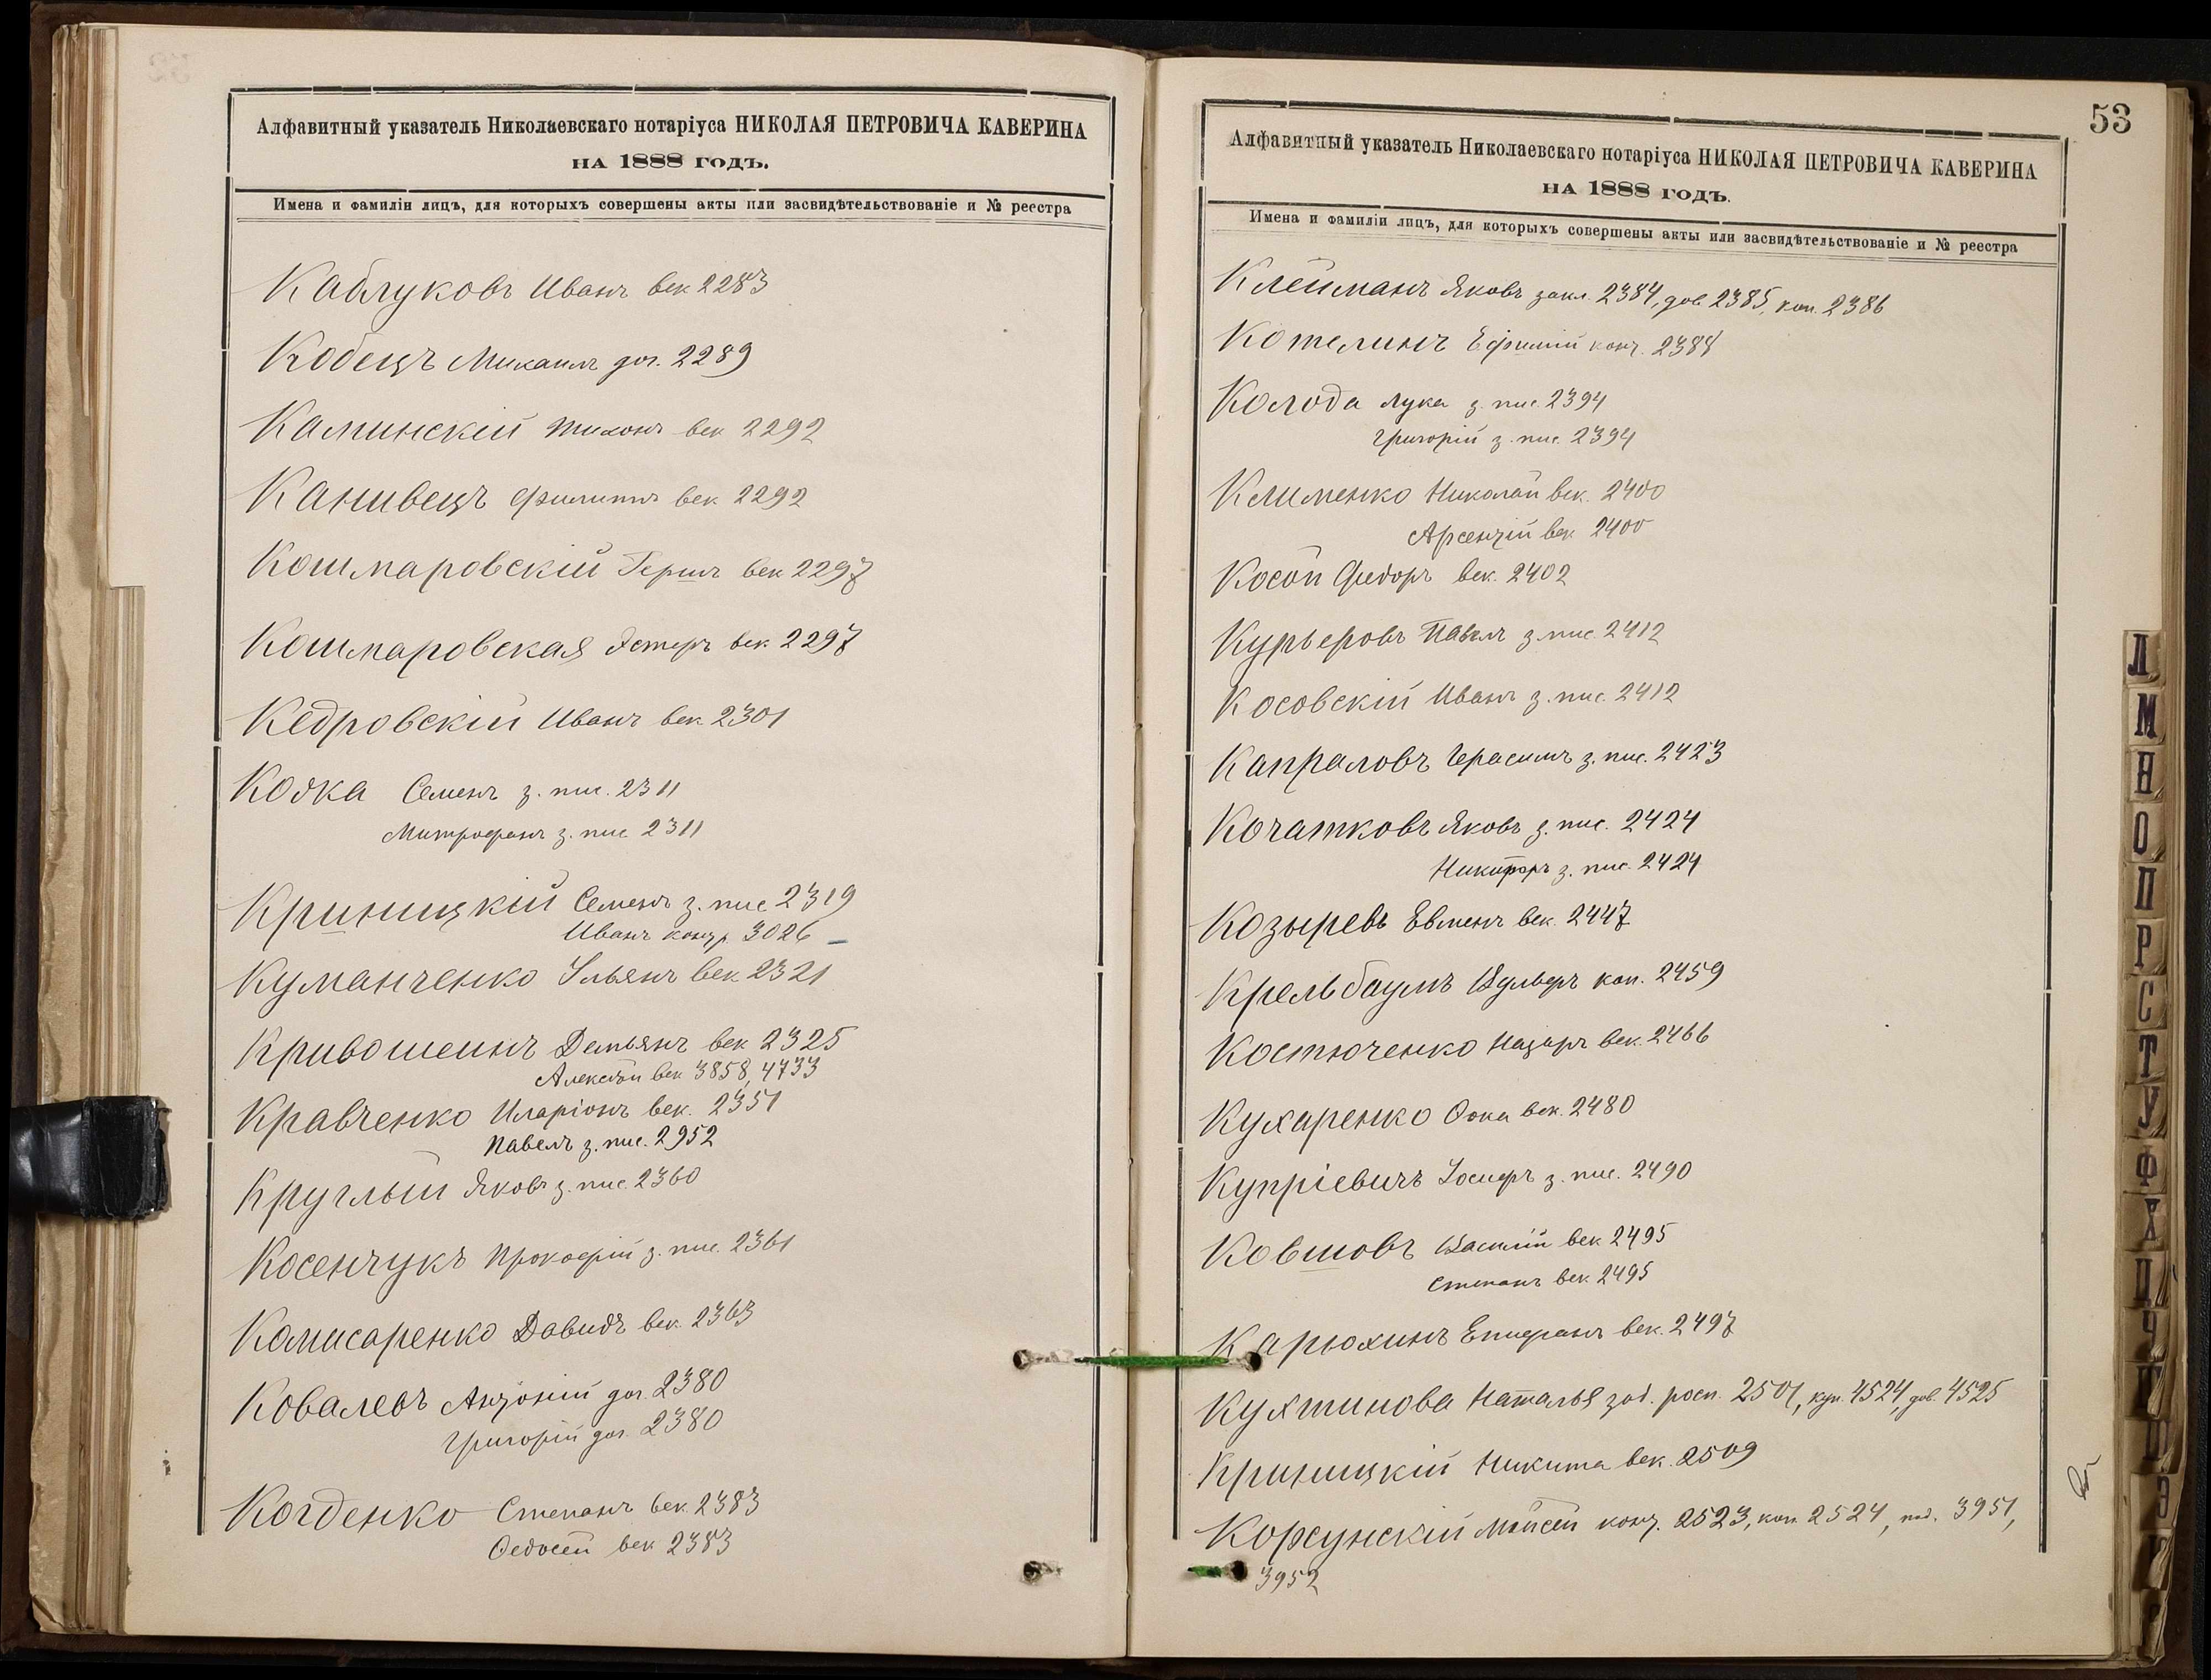 Алфавитный указатель Николаевскаго нотаріуса НИКОЛАЯ ПЕТРОВИЧА КАВЕРИНА
НА 1888 ГОДЪ.
Имена и фамиліи лицъ, для которыхъ совершены акты или засвидѣтельствованіе и № реестра
Каблуковъ Иванъ век 2283
Кобецъ Михаилъ дог. 2289
Каминскій Тихонъ век 2292
Канивецъ Филиппъ век 2292
Кошмаровскій Гершъ век 2297
Кошмаровская Эстеръ век 2297
Кедровскій Иванъ век 2301
Семенъ з. пис. 2311
Митрофанъ з. пис 2311
Криницкій Семенъ з. пис 2319
Иванъ контр 3026
Куманченко Ульянъ век 2321
Кривошеинъ Демьянъ век 2325
Алексѣй век 3858, 4733
Кравченко Иларіонъ век. 2351
Павелъ з. пис. 2952
Круглый Яковъ з. пис. 2360
Косенчукъ Прокофій з. пис. 2361
Комисаренко Давидъ век. 2363
Ковалевъ Антоній дог. 2380
Григорій дог. 2380
Когденко Степанъ век. 2383
Ѳедосей век 2383
53
Алфавитный указатель Николаевскаго нотаріуса НИКОЛАЯ ПЕТРОВИЧА КАВЕРИНА
НА 1888 ГОДЪ.
Имена и фамиліи лицъ, для которыхъ совершены акты или засвидѣтельствованіе и № реестра
Клейманъ Яковъ закл. 2384, дов. 2385, коп. 2386
Котелинъ Ефимій конт. 2388
Колода Лука з. пис. 2394
Григорій з. пис. 2394
Клименко Николай век. 2400
Арсентій век 2400
Косой Федоръ век. 2402
Курьеровъ Павелъ з. пис. 2412
Косовскій Иванъ з. пис. 2412
Капраловъ Герасимъ з. пис. 2423
Кочатковъ Яковъ з. пис. 2424
Никифоръ з. пис. 2424
Козыревъ Евменъ век. 2447
Крельбаумъ Вульфъ коп. 2459
Костюченко Назаръ век. 2466
Кухаренко Фока век. 2480
Купріевичъ Іосифъ з. пис. 2490
Ковшовъ Василій век 2495
Степанъ век. 2495
Карюхинъ Епифанъ век. 2497
Кухтинова Наталья зад. росп. 2501, куп. 4524, дов. 4525
Криницкій Никита век. 2509
Корсунскій Мойсей конт. 2523, коп. 2524, под. 3951,
3952
Л
М
Н
О
П
Р
С
Т
У
Ф
Х
Ц
Ч
Э